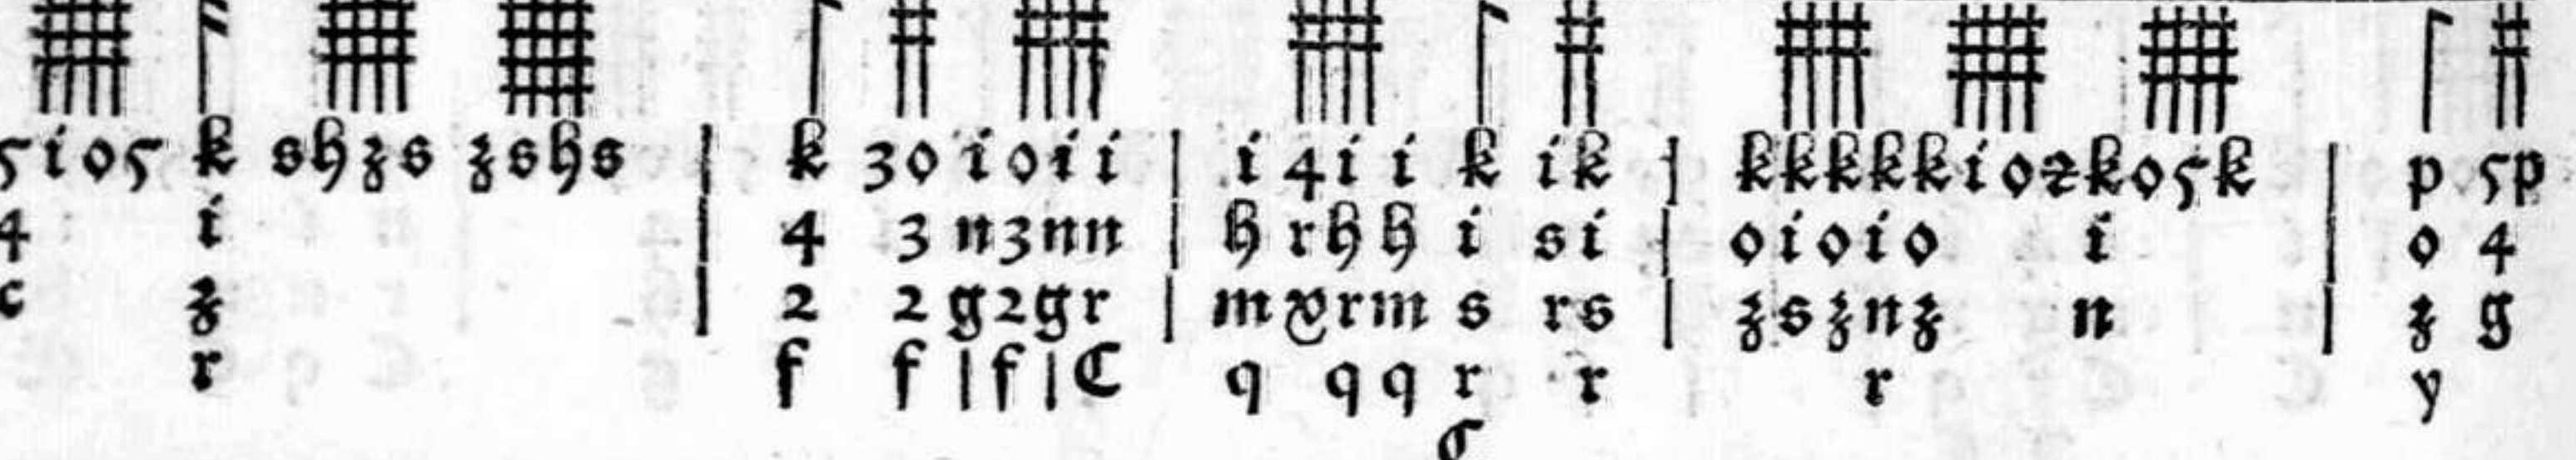 5 i o 5 k s h z s z s h s | k 3 o i o i i | i 4 i i k i k | k k k k k i o 2 k o 5 k | p 5 p
4 i | 4 3 n 3 n n | h r h h i s i | o i o i o i | o 4
c z | 2 2 g 2 g r | m v r m s r s | z s z n z n | z g
r f f | f | C q q q r r r y